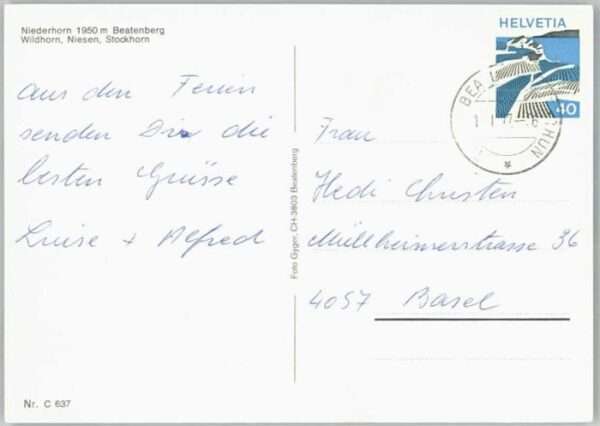 Niederhorn 1950 m Beatenberg
Wildhorn, Niesen, Stockhorn
aus den Ferien
senden Dir die
besten Grüsse
Luise + Alfred
Foto Gyger, CH-3803 Beatenberg
HELVETIA
40
Frau
Hedi Christen
Müllheimerstrasse 36
4057 Basel
Nr. C 637